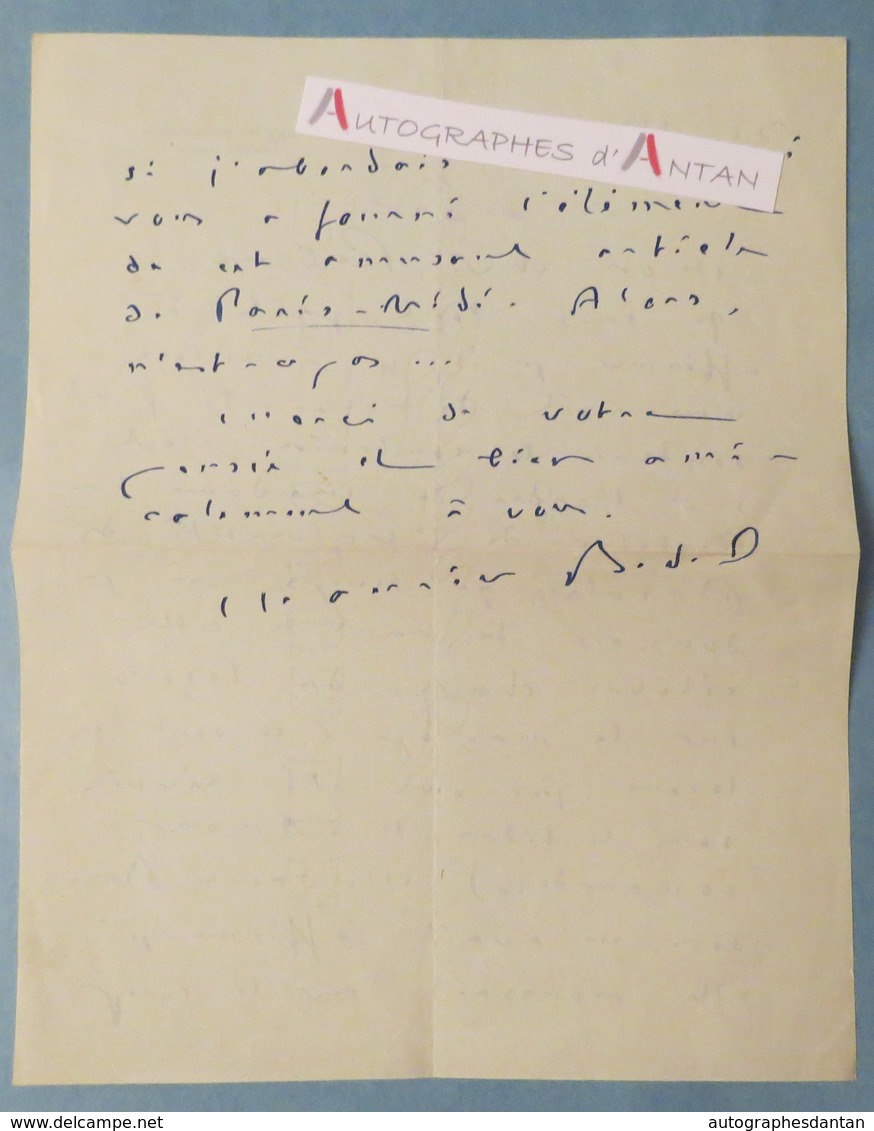 AUTOGRAPHES d'ANTAN
si j'abordais
vous a fourni l'élément
de cet amusant article
de Paris-Midi. Alors,
n'est-ce pas...
Merci de votre
pensée et bien ami-
calement à vous.
Maurice
delcampe.net
autographesdantan